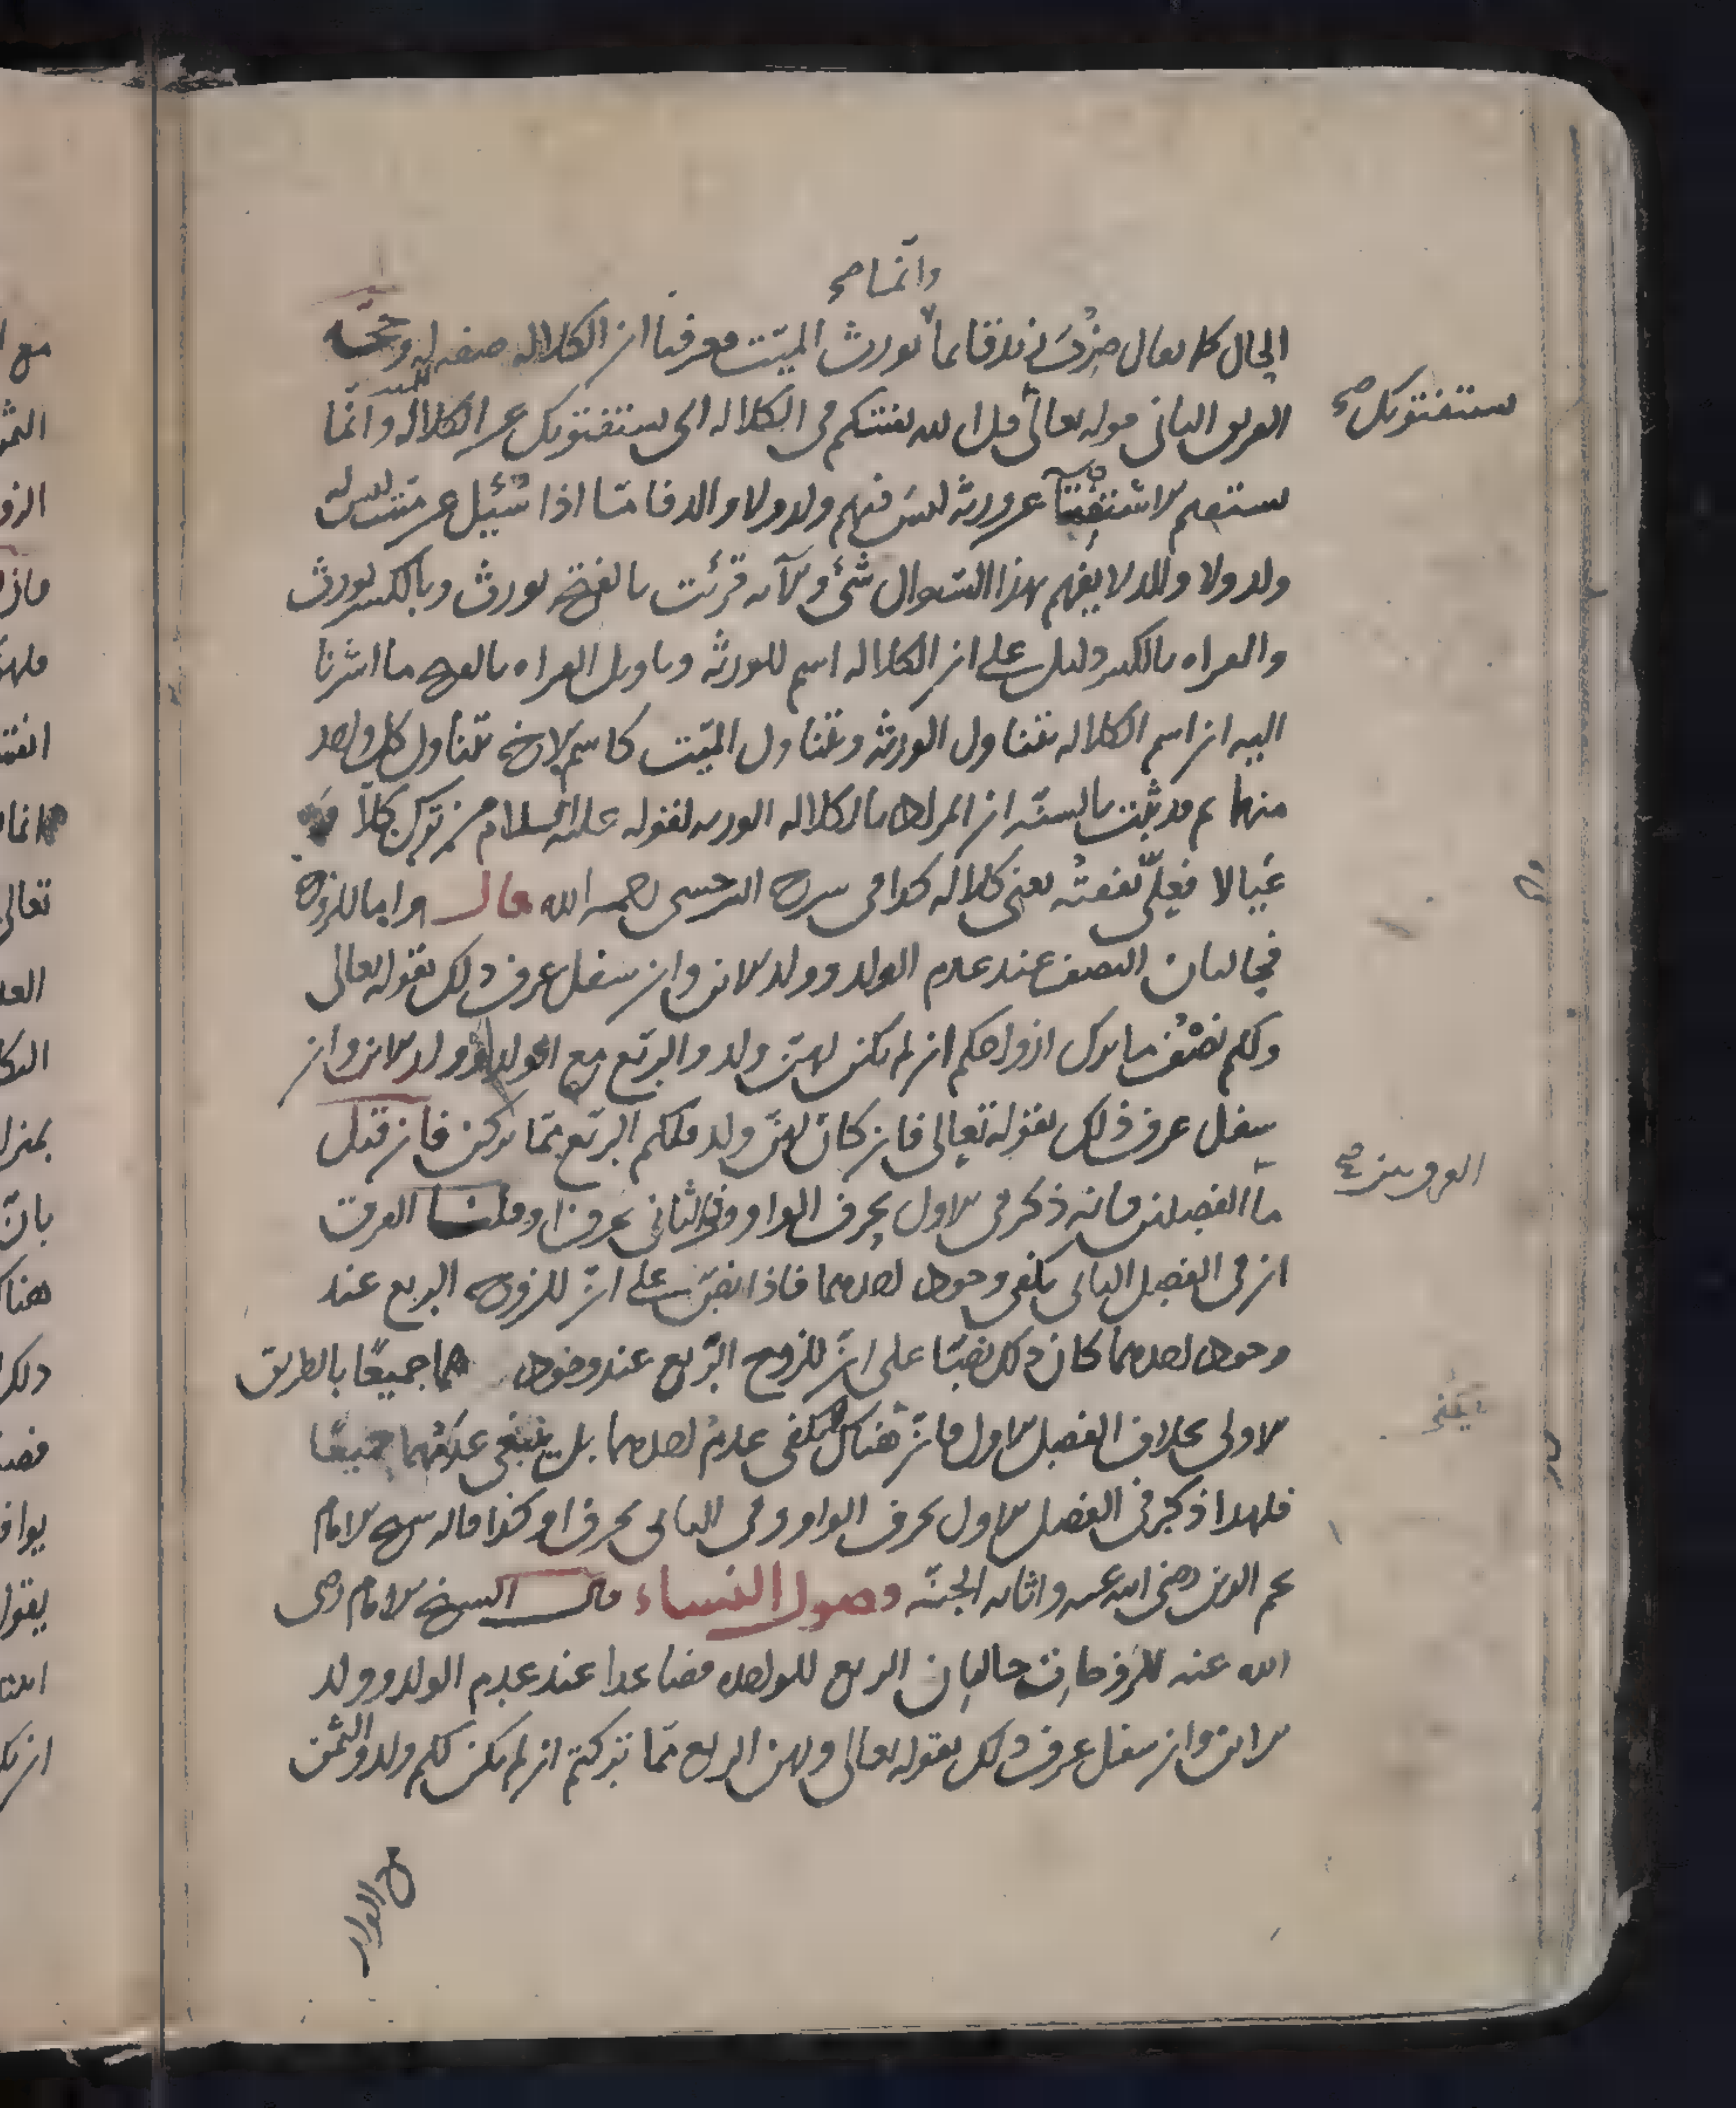 وانما صح
الحال كما يقال ضرب زيد قائما يورث الميت فعرفنا ان الكلالة صفة له وحجة
الفريق الثاني قوله تعالى قل الله يفتيكم في الكلالة اي يستفتونك عن الكلالة وانما
يستفتونك صح
يستقيم الاستفتاء عن ورثة ليس فيهم ولد ولا والد فاما اذا سئيل عن ميت ليس له
ولد ولا والد لا يفهم بهذا السوال شئ والآية قرئت بالفتح يورث وبالكسر يورث
والقراه بالكسر دليل على ان الكلاله اسم للورثة وتاويل القراه بالفتح ما اشرنا
اليه ان اسم الكلاله يتناول الورثة ويتناول الميت كاسم الاخ يتناول كل واحد
منهما ثم قد ثبت بالسنة ان المراد بالكلاله الورثه لقوله عليه السلام من ترك كلا
عيالا فعلي نفقته يعني كلاله كذا في شرح السرخسي رحمه الله قال واما للزوج
فحالتان النصف عند عدم الولد وولد الابن وان سفل عرف ذلك بقوله تعالى
ولكم نصف ما ترك ازواجكم ان لم يكن لهن ولد والربع مع الولد او ولد الابن وان
سفل عرف ذلك بقوله تعالى فان كان لهن ولد فلكم الربع مما تركن فان قيل
ما الفرق بين صح
ما الفصلين فانه ذكر في الاول بحرف الواو وفي الثاني بحرف او قلنا الفرق
ان في الفصل الثاني يكفي وجود احدهما فاذا نص على ان للزوج الربع عند
وجود احدهما كان ذلك نصا على ان للزوج الربع عند وجود هما جميعا بالطريق
الاولى بخلاف الفصل الاول فان هناك لا يكفي عدم احدهما بل ينبغي عدمهما جميعا
يكفي
فلهذا ذكر في الفصل الاول بحرف الواو وفي الثاني بحرف او كذا قاله شيخ الامام
نجم الدين رضي الله عنه واثابه الجنة فصول النساء قال الشيخ الامام رضي
الله عنه للزوجات حالتان الربع للواحدة فصاعدا عند عدم الولد وولد
الابن وان سفل عرف ذلك بقوله تعالى ولهن الربع مما تركتم ان لم يكن لكم ولد والثمن
مع الولد